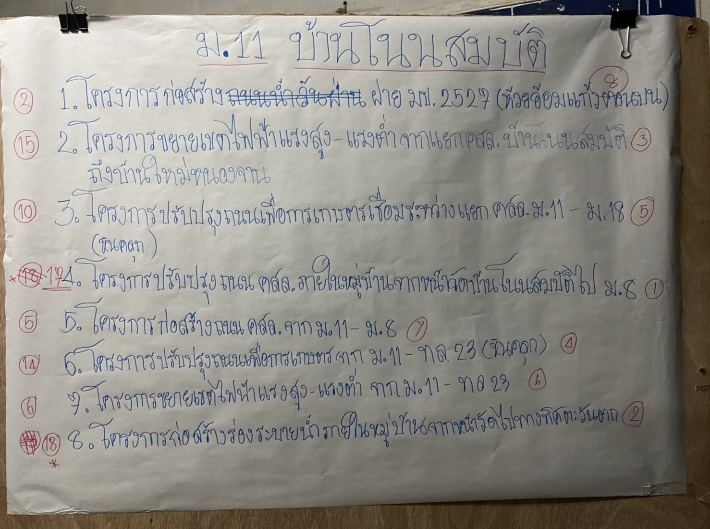 ม.11 บ้านโนนสมบัติ
② 1. โครงการก่อสร้าง ฝาย มข. 2527 (ห้วยอ้อมแก้วตอนบน) ⑧
⑮ 2. โครงการขยายเขตไฟฟ้าแรงสูง-แรงต่ำ จากแยก คสล. บ้านโนนสมบัติ ③
ถึงบ้านใหม่หนองจาน
⑩ 3. โครงการปรับปรุงถนนเพื่อการเกษตรเชื่อมระหว่างแยก คสล. ม.11 - ม.18 ⑤
(หินคลุก)
* 17 4. โครงการปรับปรุงถนน คสล. ภายในหมู่บ้านจากหน้าวัดบ้านโนนสมบัติไป ม.8 ①
⑤ 5. โครงการก่อสร้างถนน คสล. จาก ม.11 - ม.8 ⑦
⑭ 6. โครงการปรับปรุงถนนเพื่อการเกษตร จาก ม.11 - ทล 23 (หินคลุก) ④
⑥ 7. โครงการขยายเขตไฟฟ้าแรงสูง-แรงต่ำ จาก ม.11 - ทล 23 ⑥
⑱ 8. โครงการก่อสร้างร่องระบายน้ำภายในหมู่บ้านจากหน้าวัดไปทางทิศตะวันตก ②
*